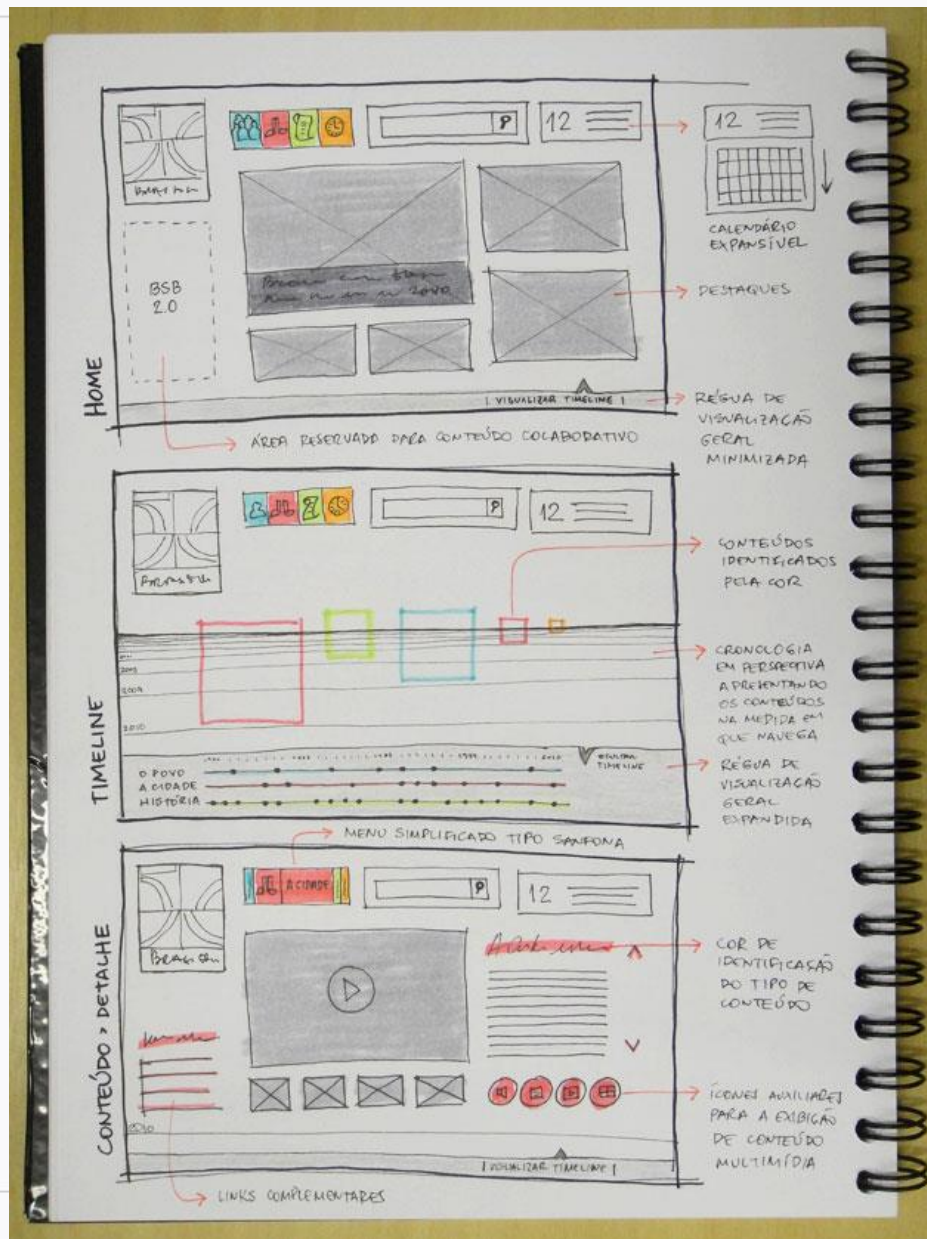 HOME
12
12
CALENDÁRIO
EXPANSÍVEL
BSB
2.0
DESTAQUES
| VISUALIZAR TIMELINE |
RÉGUA DE
VISUALIZAÇÃO
GERAL
MINIMIZADA
ÁREA RESERVADA PARA CONTEÚDO COLABORATIVO
TIMELINE
12
CONTEÚDOS
IDENTIFICADOS
PELA COR
CRONOLOGIA
EM PERSPECTIVA
APRESENTANDO
OS CONTEÚDOS
NA MEDIDA EM
QUE NAVEGA
2009
2010
OCULTAR
TIMELINE
O POVO
A CIDADE
HISTÓRIA
RÉGUA DE
VISUALIZAÇÃO
GERAL
EXPANDIDA
MENU SIMPLIFICADO TIPO SANFONA
CONTEÚDO > DETALHE
A CIDADE
12
COR DE
IDENTIFICAÇÃO
DO TIPO DE
CONTEÚDO
ÍCONES AUXILIARES
PARA A EXIBIÇÃO
DE CONTEÚDO
MULTIMÍDIA
| VISUALIZAR TIMELINE |
LINKS COMPLEMENTARES